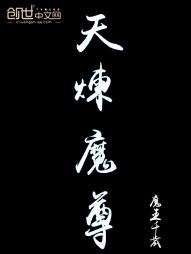 创世中文网
chuangshi.qq.com
天煉魔尊
魔王千裁